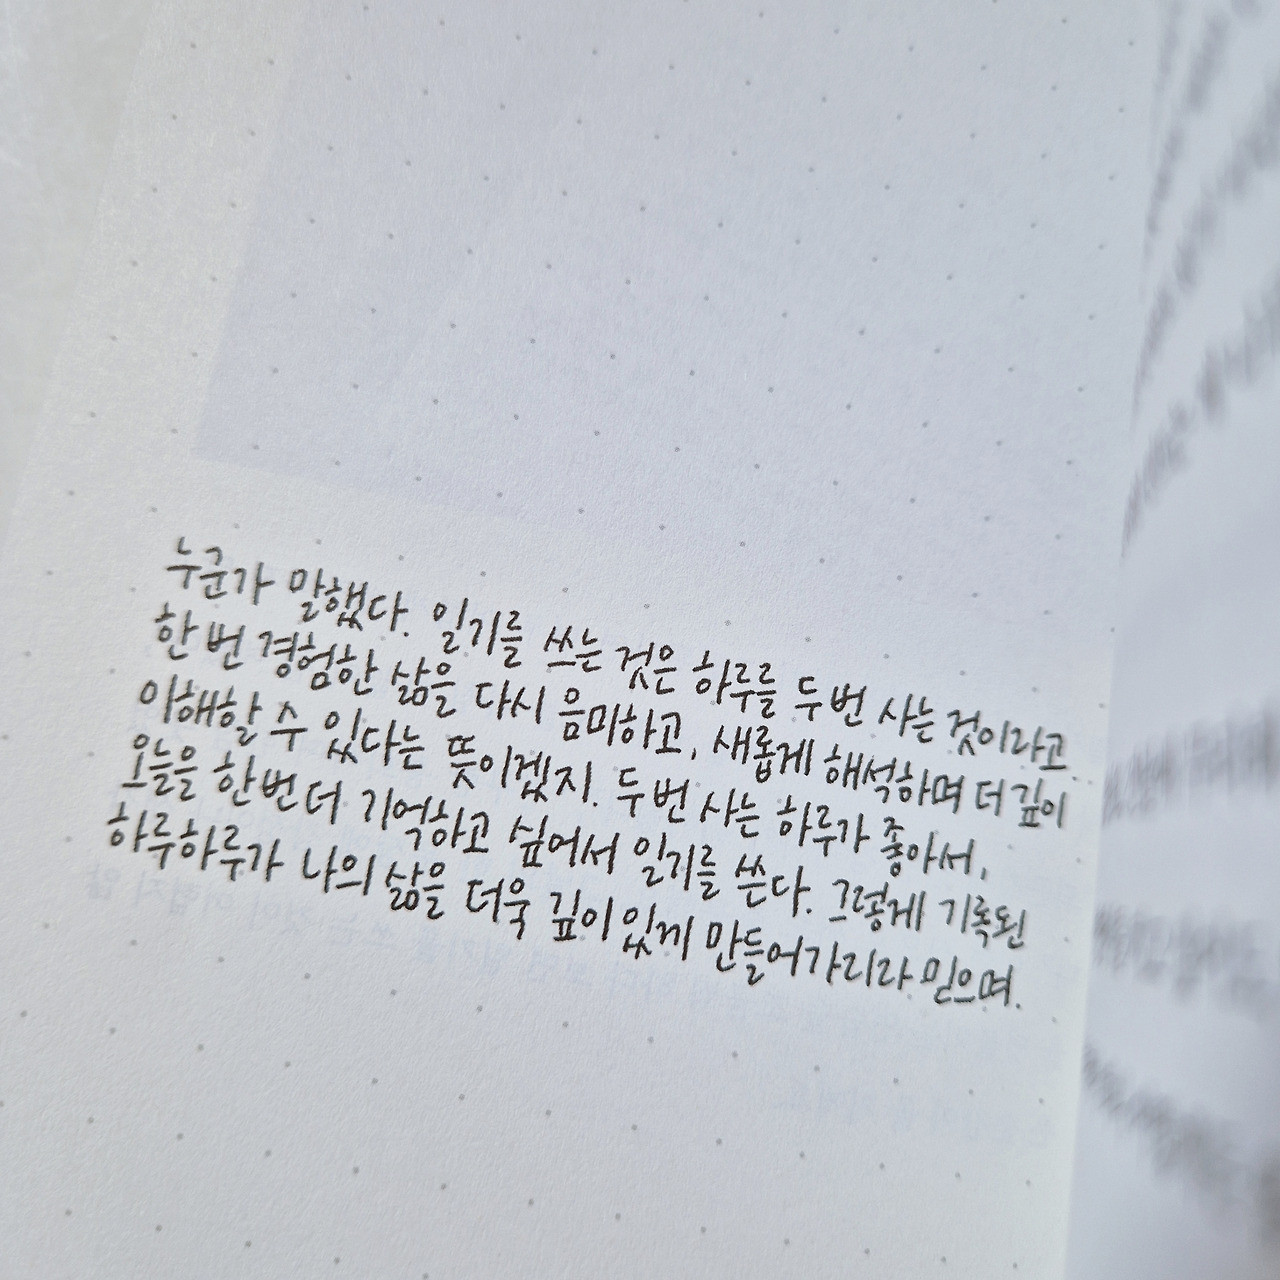 누군가 말했다. 일기를 쓰는 것은 하루를 두번 사는 것이라고.
한 번 경험한 삶을 다시 음미하고, 새롭게 해석하며 더 깊이
이해할 수 있다는 뜻이겠지. 두번 사는 하루가 좋아서,
오늘을 한번 더 기억하고 싶어서 일기를 쓴다. 그렇게 기록된
하루하루가 나의 삶을 더욱 깊이있게 만들어가리라 믿으며.